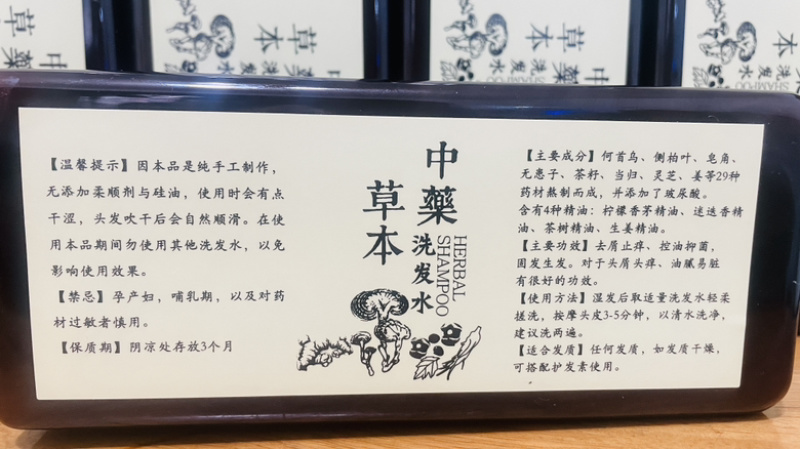 【温馨提示】因本品是纯手工制作，
无添加柔顺剂与硅油，使用时会有点
干涩，头发吹干后会自然顺滑。在使
用本品期间勿使用其他洗发水，以免
影响使用效果。
【禁忌】孕产妇，哺乳期，以及对药
材过敏者慎用。
【保质期】阴凉处存放3个月
中藥
草本
洗发水
HERBAL
SHAMPOO
【主要成分】何首乌、侧柏叶、皂角、
无患子、茶籽、当归、灵芝、姜等29种
药材熬制而成，并添加了玻尿酸。
含有4种精油：柠檬香茅精油、迷迭香精
油、茶树精油、生姜精油。
【主要功效】去屑止痒、控油抑菌，
固发生发。对于头屑头痒、油腻易脏
有很好的功效。
【使用方法】湿发后取适量洗发水轻柔
搓洗，按摩头皮3-5分钟，以清水洗净，
建议洗两遍。
【适合发质】任何发质，如发质干燥，
可搭配护发素使用。
中藥
草本
洗发水
中藥
草本
洗发水
SHAMPOO
中藥
草本
洗发水